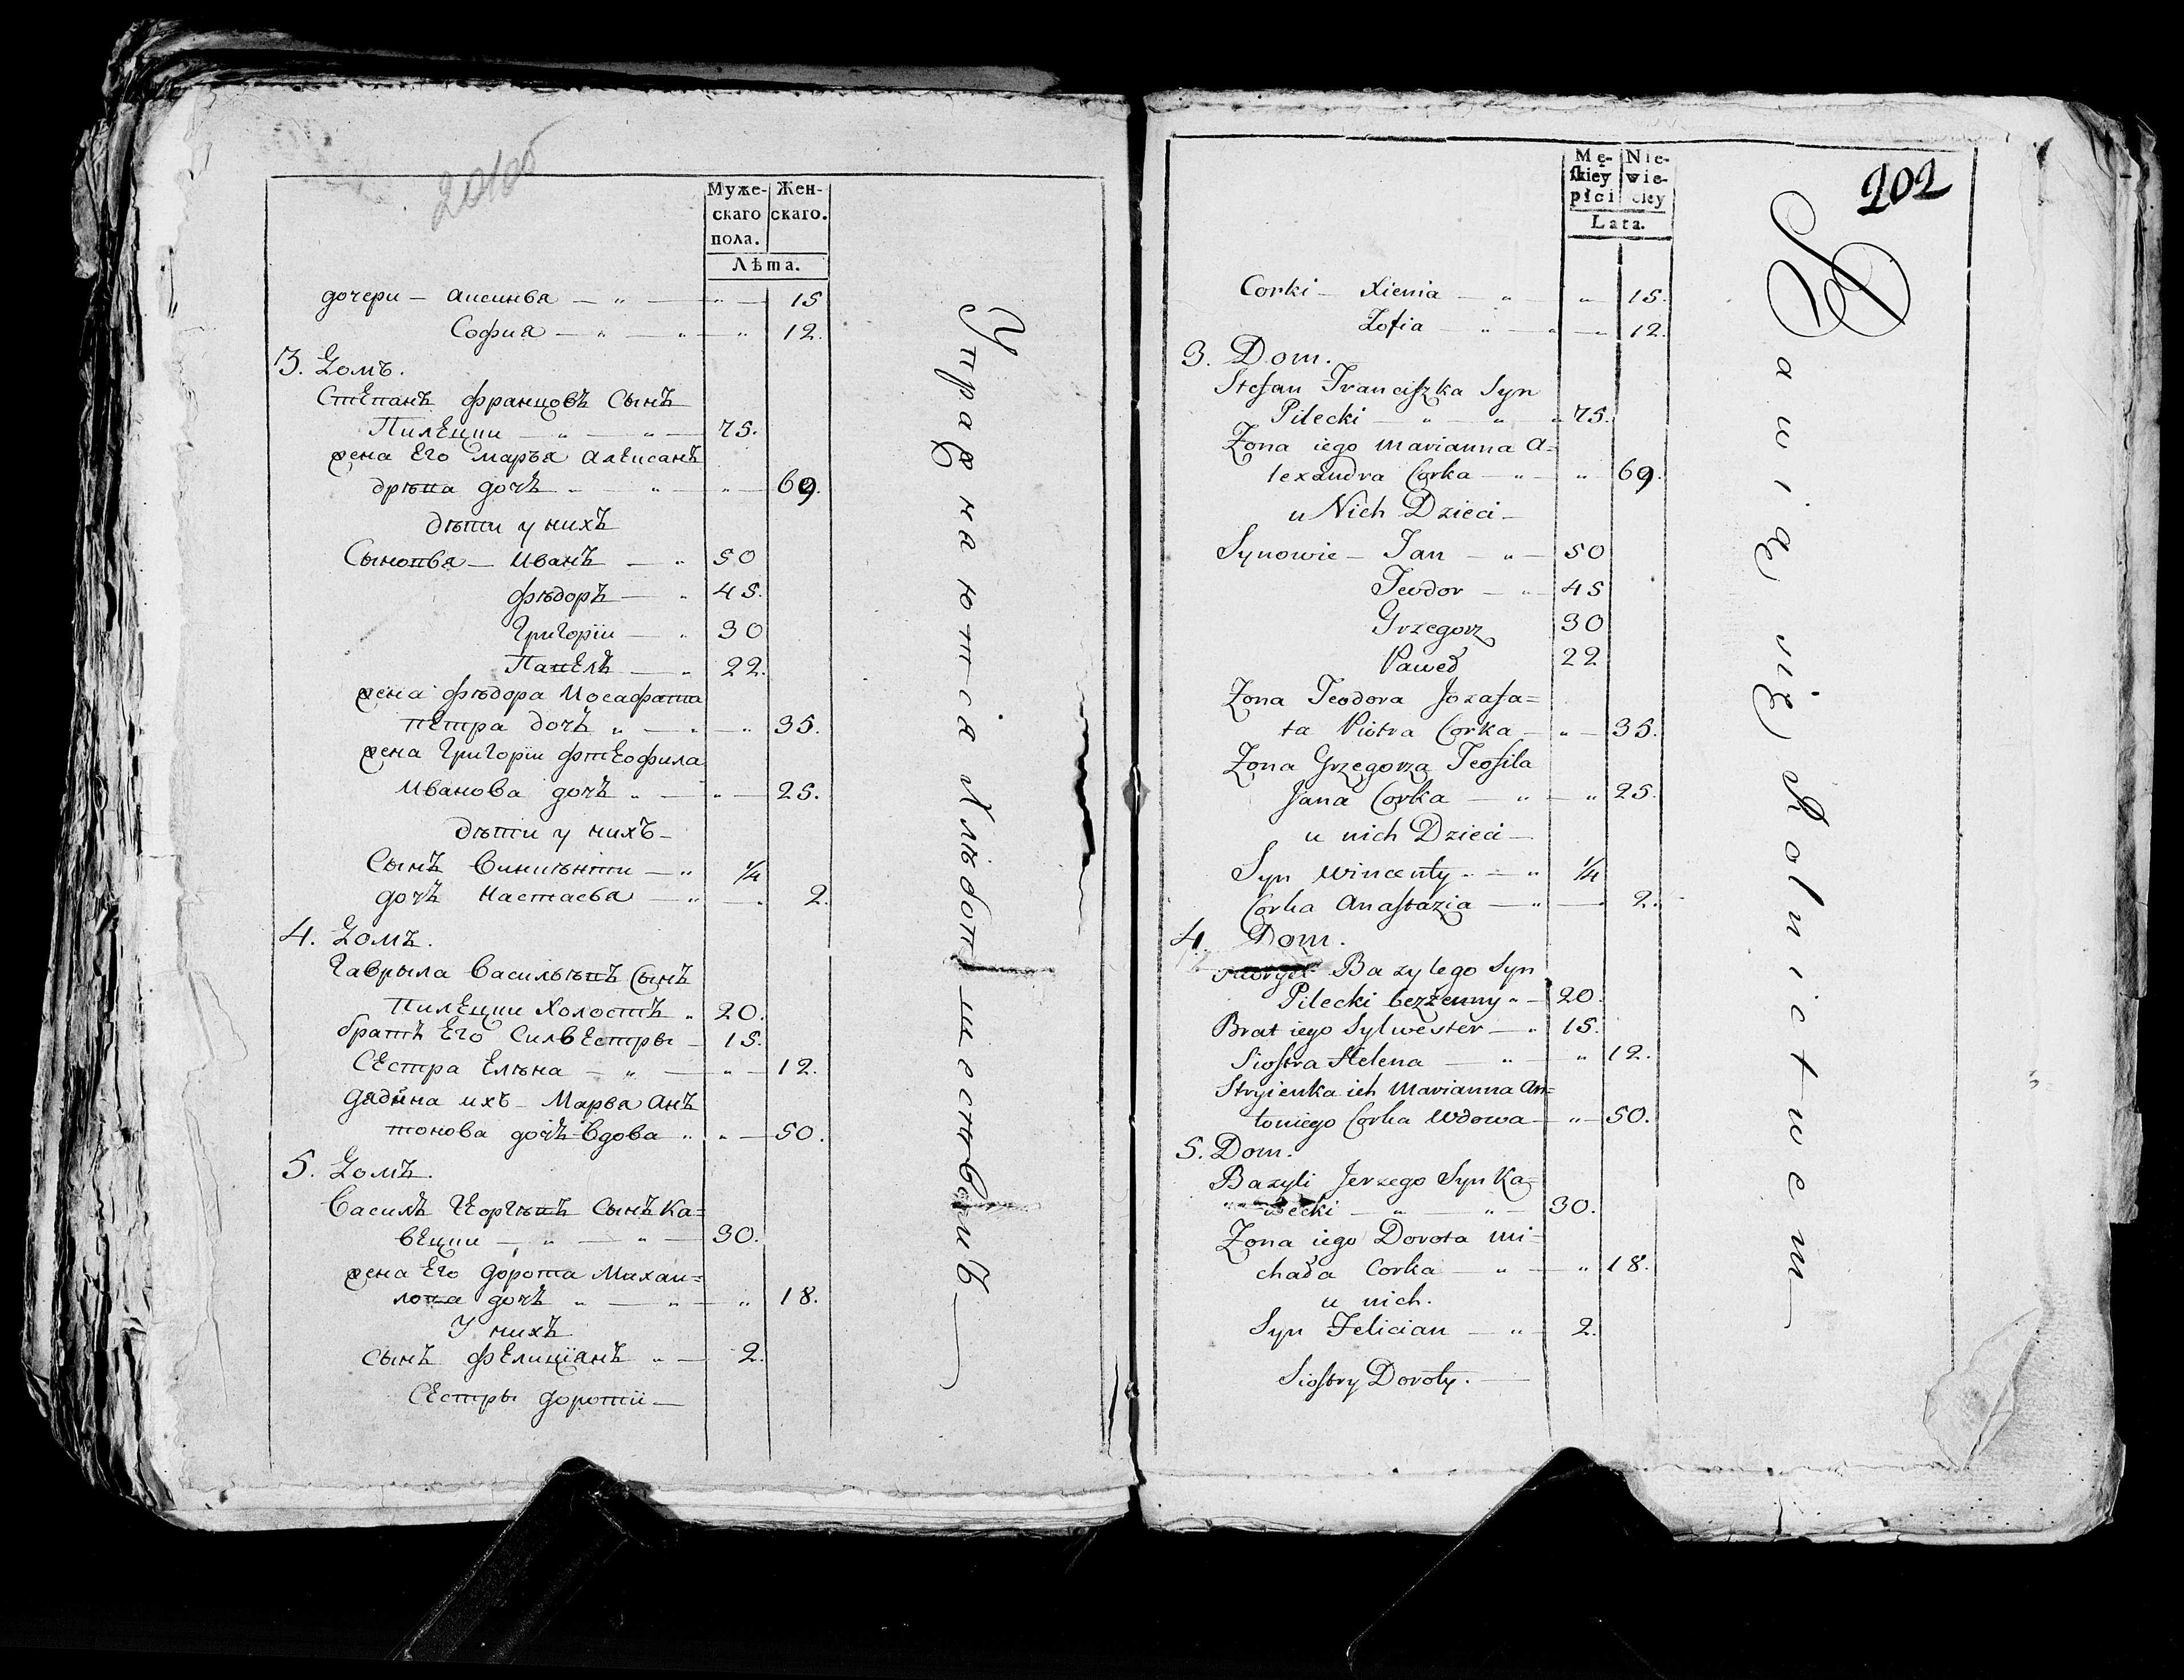 Муже-
скаго
пола.
Жен-
скаго.
Лѣта.
дочери — Аксинья — „ — „ — 15
София — „ — „ — „ 12.
3. Домъ.
Степанъ Францовъ Сынъ
Пилецки — „ — „ — 75.
жена Его Марья Алексанъ
дрѣва дочъ „ — „ — „ — 69.
Дѣти у нихъ
Сыновья — Иванъ — „ 50
Фѣдоръ — „ 45.
Григорїи — „ 30
Павелъ — „ 22.
жена Фѣдора Иосафата
Петра дочъ „ — „ — „ 35.
жена Григорїи Фтеофила
Иванова дочъ „ — „ — 25.
Дѣти у нихъ —
Сынъ Винцѣнти — „ 1/4
дочъ Настасья — „ — „ 2.
4. Домъ.
Гаврыла Васильѣвъ Сынъ
Пилецки Холостъ „ 20.
братъ Его Сильвестры — 15.
Сестра Елѣна — „ — „ — 12.
дядина ихъ — Марья Анъ
тонова дочъ Вдова „ „ — 50.
5. Домъ.
Василъ Георгѣвъ Сынъ Ка=
вецки — „ — „ — 30.
жена Его Дорота Михаи=
лова дочъ „ — „ — „ 18.
У нихъ
сынъ Фелицїанъ „ — 2.
Сестры Доротїи —
Упражнаются Хлѣбопашествомъ
Mę-
skiey
płci
Nie-
wie-
ciey
Lata.
202
Corki — Xienia — „ „ 15.
Zofia — „ — „ — „ 12.
3. Dom.
Stefan Franciszka Syn
Pilecki — „ — „ — „ 75.
Zona iego Marianna A=
lexandra Corka — „ — „ — 69.
u Nich Dzieci —
Synowie — Jan — „ — 50
Teodor — „ — 45
Grzegorz 30
Paweł 22
Zona Teodora Jozafa=
ta Piotra Corka — „ — 35.
Zona Grzegorza Teofila
Jana Corka — „ — „ 25.
u nich Dzieci —
Syn Wincenty „ — „ 1/4
Corka Anastazia — „ — 2.
4. Dom.
Bazylego Syn
Pilecki bezżenny „ — 20.
Brat iego Sylwester — „ 15.
Siostra Helena — „ — „ 12.
Stryienka ich Marianna An=
toniego Corka Wdowa — „ — 50.
5. Dom.
Bazyli Jerzego Syn Ka=
wecki — „ — „ — 30.
Zona iego Dorota Mi=
chała Corka — „ — „ 18.
u nich.
Syn Felician — „ — 2.
Siostry Doroty. —
Bawią się Rolnictwem